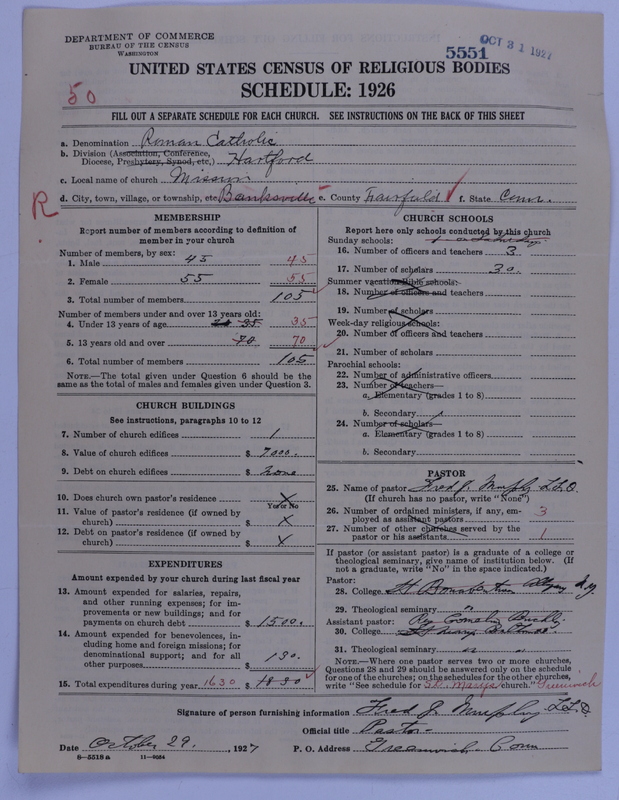 DEPARTMENT OF COMMERCE
BUREAU OF THE CENSUS
WASHINGTON
5551
OCT 31 1927
UNITED STATES CENSUS OF RELIGIOUS BODIES
SCHEDULE: 1926
50
FILL OUT A SEPARATE SCHEDULE FOR EACH CHURCH. SEE INSTRUCTIONS ON THE BACK OF THIS SHEET
a. Denomination Roman Catholic
b. Division (Association, Conference, Diocese, Presbytery, Synod, etc.) Hartford
c. Local name of church Mission
d. City, town, village, or township, etc. Banksville e. County Fairfield f. State Conn.
R
MEMBERSHIP
Report number of members according to definition of
member in your church
Number of members, by sex:
1. Male 45 45
2. Female 55 55
3. Total number of members 105
Number of members under and over 13 years old:
4. Under 13 years of age 35 35
5. 13 years old and over 70 70
6. Total number of members 105
NOTE.—The total given under Question 6 should be the
same as the total of males and females given under Question 3.
CHURCH BUILDINGS
See instructions, paragraphs 10 to 12
7. Number of church edifices 1
8. Value of church edifices $ 7000.
9. Debt on church edifices $ None
10. Does church own pastor's residence X
Yes or No
11. Value of pastor's residence (if owned by
church) $ X
12. Debt on pastor's residence (if owned by
church) $ X
EXPENDITURES
Amount expended by your church during last fiscal year
13. Amount expended for salaries, repairs,
and other running expenses; for im-
provements or new buildings; and for
payments on church debt $ 1500.
14. Amount expended for benevolences, in-
cluding home and foreign missions; for
denominational support; and for all
other purposes $ 130.
15. Total expenditures during year 1630 $ 1830
CHURCH SCHOOLS
Report here only schools conducted by this church
Sunday schools:
16. Number of officers and teachers 3
17. Number of scholars 30.
Summer vacation Bible schools:
18. Number of officers and teachers
19. Number of scholars
Week-day religious schools:
20. Number of officers and teachers
21. Number of scholars
Parochial schools:
22. Number of administrative officers
23. Number of teachers—
a. Elementary (grades 1 to 8)
b. Secondary
24. Number of scholars—
a. Elementary (grades 1 to 8)
b. Secondary
PASTOR
25. Name of pastor Fred J. Murphy LL.D.
(If church has no pastor, write "None")
26. Number of ordained ministers, if any, em-
ployed as assistant pastors 3
27. Number of other churches served by the
pastor or his assistants 1
If pastor (or assistant pastor) is a graduate of a college or
theological seminary, give name of institution below. (If
not a graduate, write "No" in the space indicated.)
Pastor:
28. College St Bonaventure Allegany N.Y.
29. Theological seminary "
Assistant pastor: Rev Cornelius
30. College St Marys Baltimore
31. Theological seminary " "
NOTE.—Where one pastor serves two or more churches,
Questions 28 and 29 should be answered only on the schedule
for one of the churches; on the schedules for the other churches,
write "See schedule for St. Marys church." Greenwich
Signature of person furnishing information Fred J. Murphy LL.D.
Official title Pastor
Date October 29, 1927 P. O. Address Greenwich Conn
8—5518a 11—9084